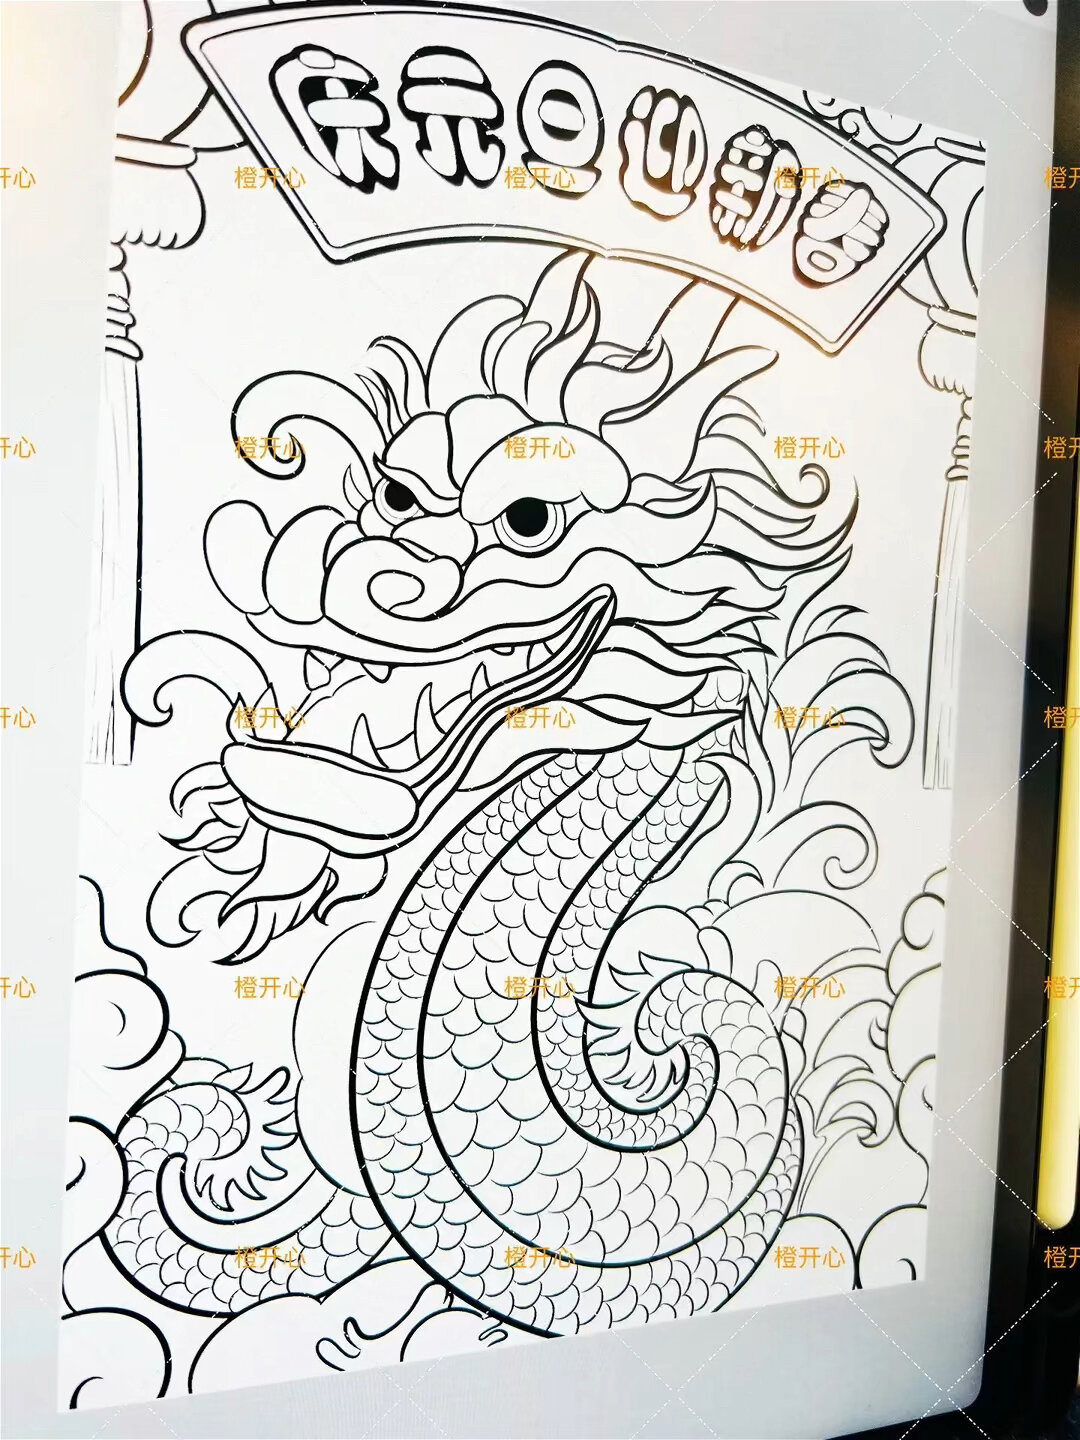 庆元旦迎新春
橙开心 橙开心 橙开心 橙开心 橙开
橙开心 橙开心 橙开心 橙开心 橙开
橙开心 橙开心 橙开心 橙开心 橙开
橙开心 橙开心 橙开心 橙开心 橙开
橙开心 橙开心 橙开心 橙开心 橙开